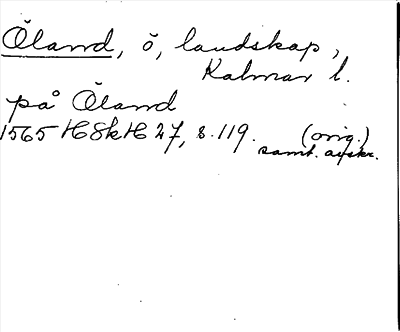 Öland, ö, landskap,
Kalmar l.
på Öland
1565 HSkH 27, s. 119. (orig.)
samt. avskr.